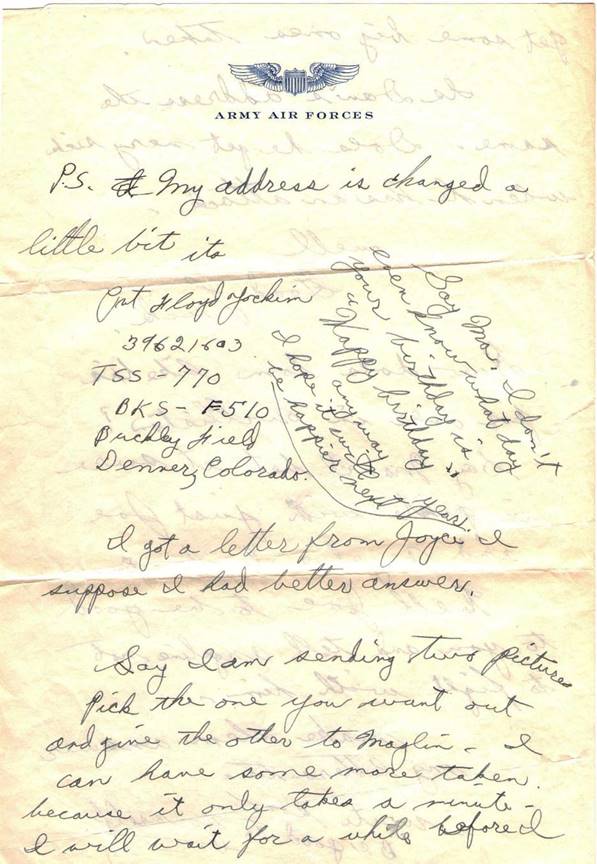 ARMY AIR FORCES
P.S. My address is changed a
little bit its
Pvt Floyd Yockim
39621603
TSS-770
BKS-F510
Buckley Field
Denver, Colorado.
Say Ma. I don't
even know what day
your birthday is
a Happy birthday
anyway
I hope it will
be happier next year.
I got a letter from Joyce I
suppose I had better answer.
Say I am sending two pictures
Pick the one you want out
and give the other to Maglin - I
can have some more taken.
because it only takes a minute -
I will wait for a while before I